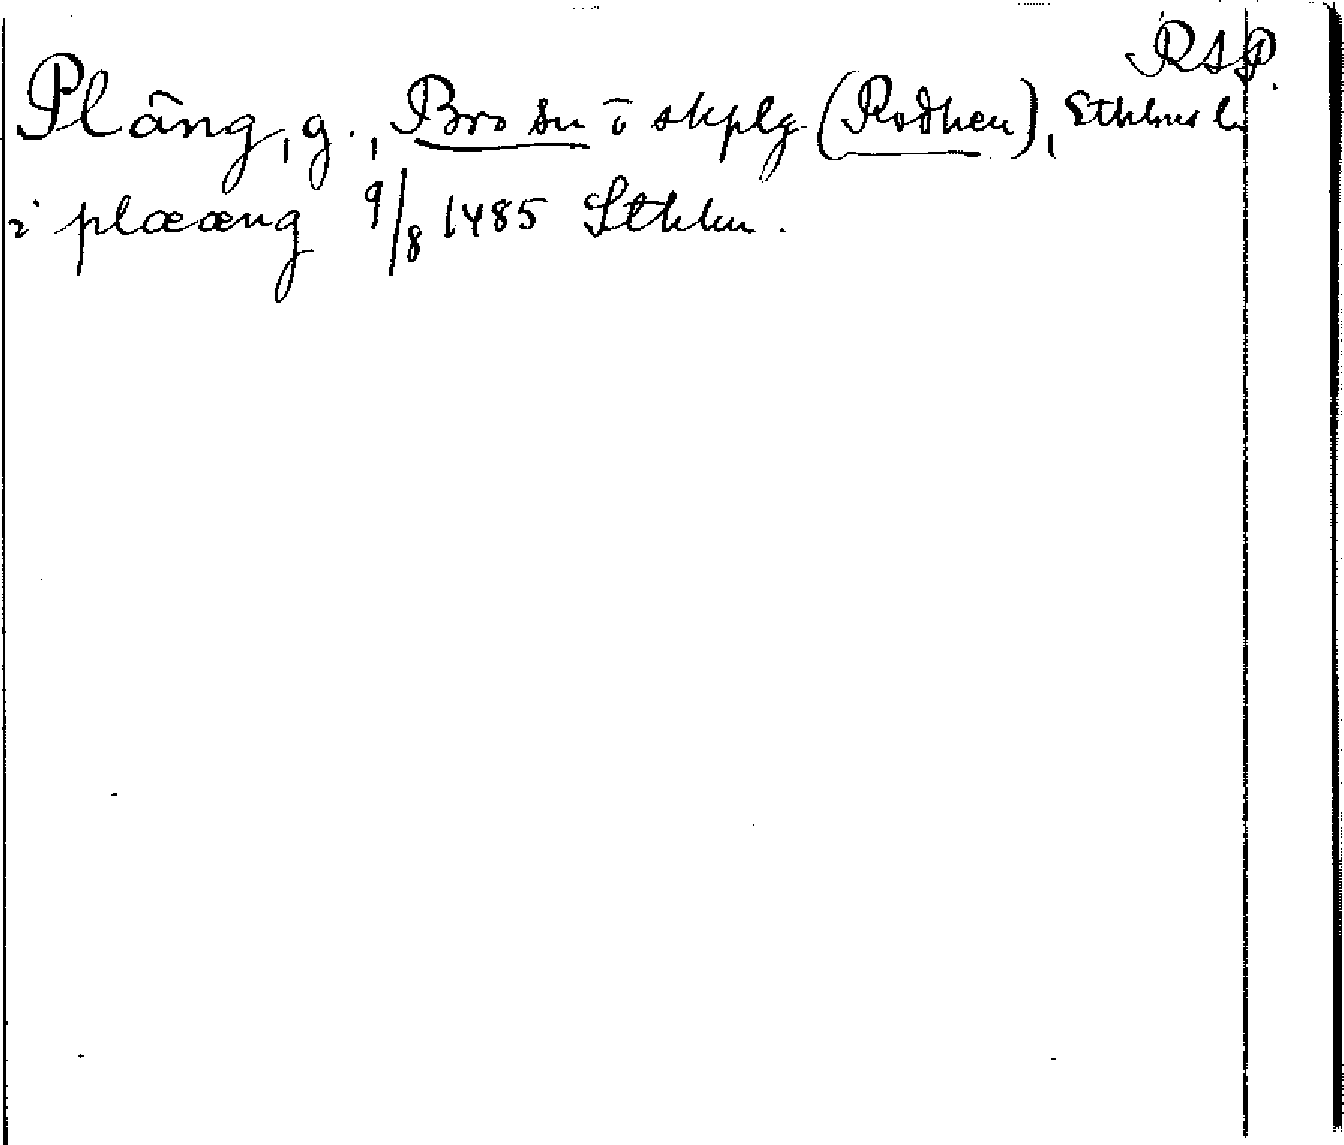 RAP.
Plång, g., Bro sn o skplg (Rodhen), Sthlms l
i plææng 9/8 1485 Sthlm.